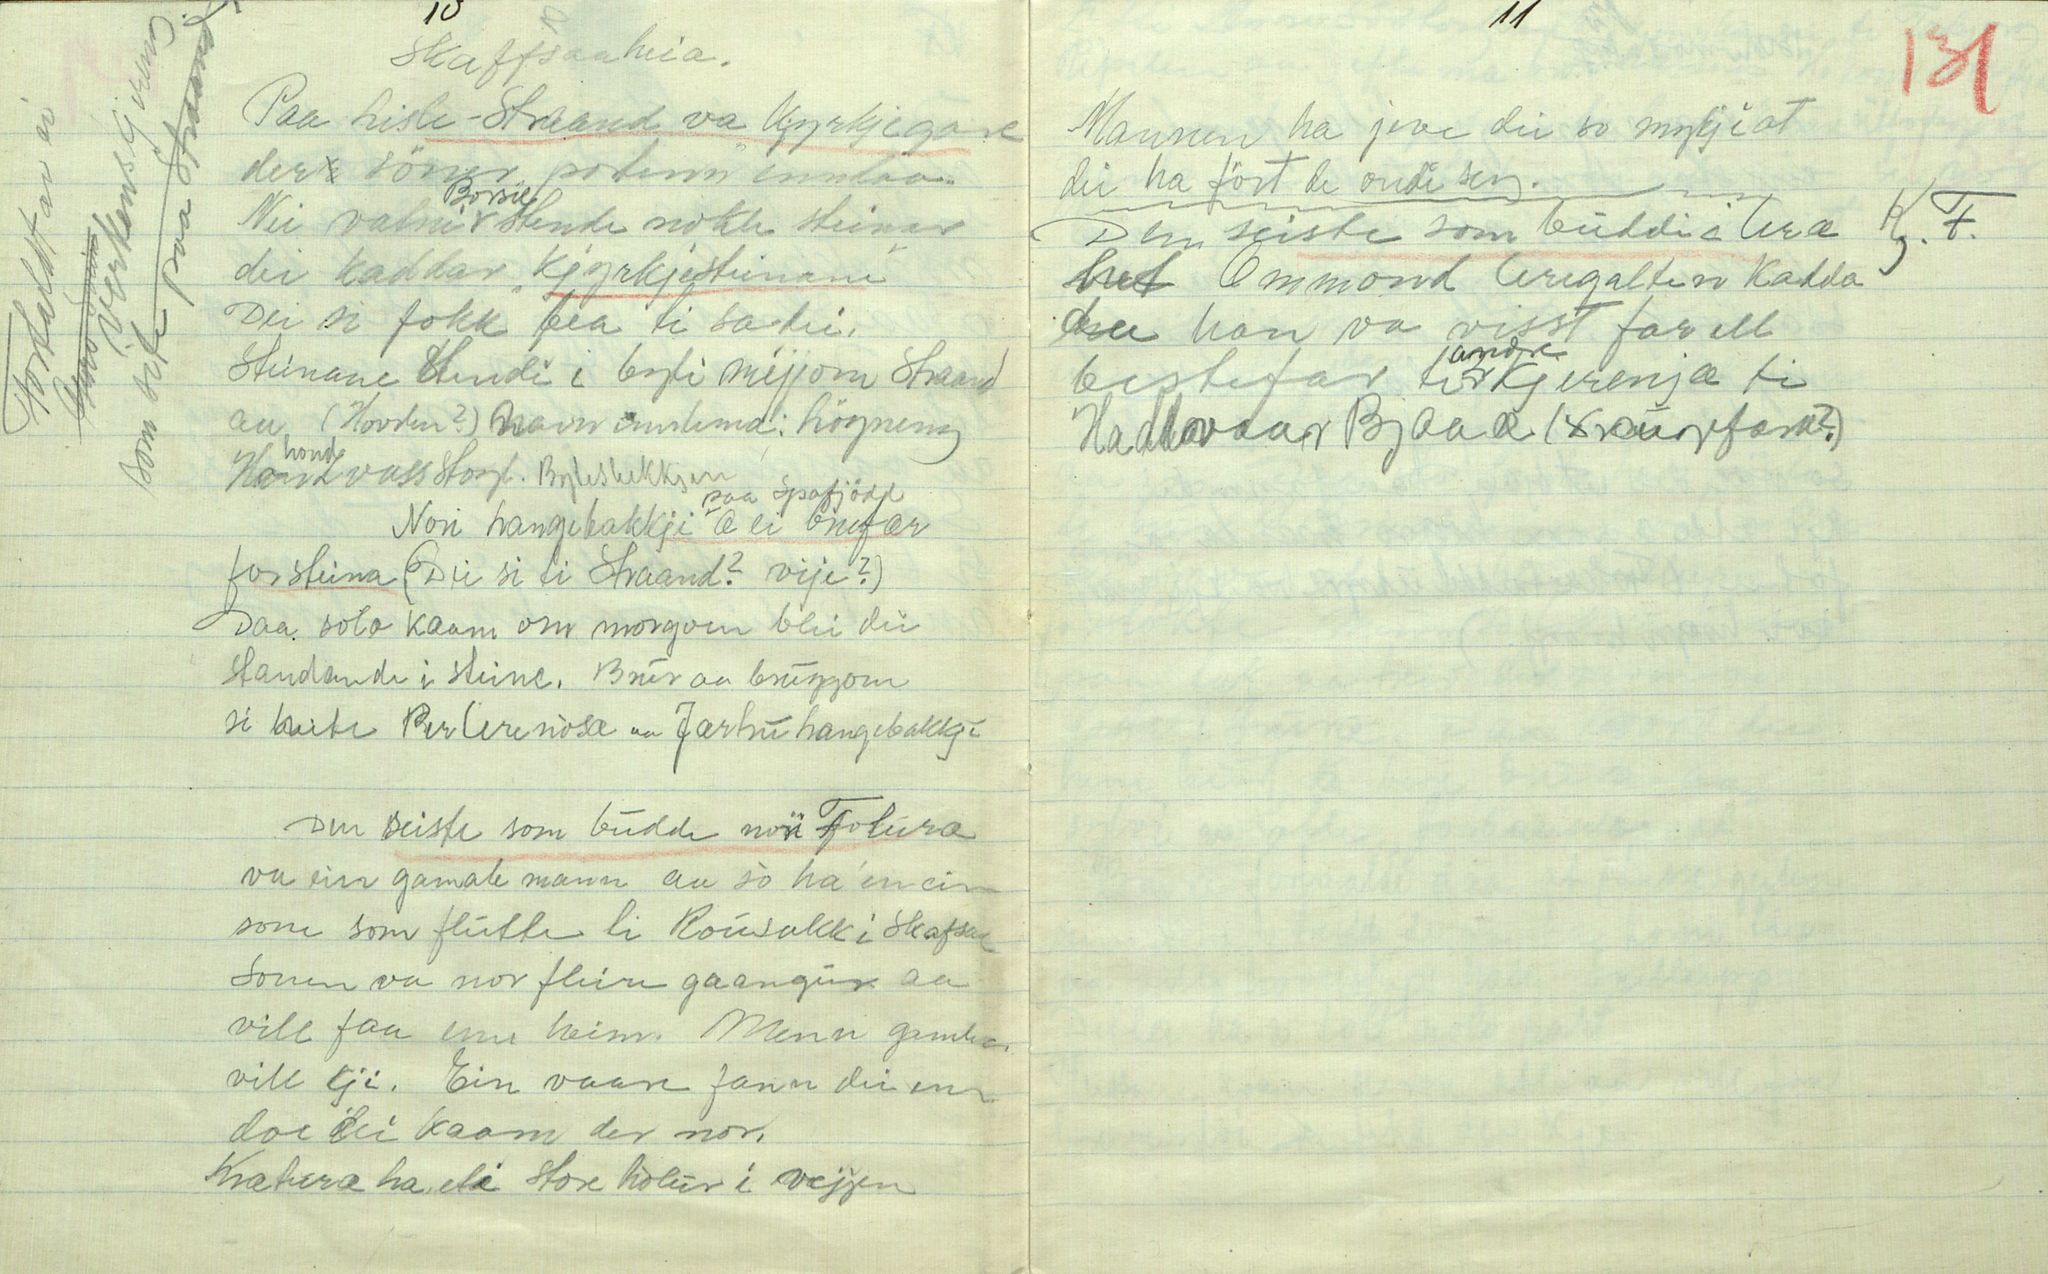 10
Skaffsaaheia.
Paa hisle-Straand va Kyrkjegare
der sönner
Nei valni Borsie stende nokle steinar
dei kaddar "Kjyrkjesteinani"
Dei si fokk bea ti sa dei.
Steinane stende i byti mijjom Straand
au (Hovden?) navn : högneng
honde vassstoyl. Bytesbekkjen
Nori hangebakkji paa Spafjödd
Æ ei bruefær
forsteina (Dei si ti Straand? vije?)
Daa solo kaam om morgoen blei dei
standande i steine. Brur au brúggom
si heite Perlerenósæ au Jarhú hangebakkji
Den seiste som búdde nori Foli uræ
va ein gamale mann au so ha en ein
sone som flútte ti Rousukki Skafsaa
Sonen va nor fleire gaangúr au
vill faa enn heim. Menn gamlen
vill kji. Ein vaare fann dei enn
doe dei kaam der nor.
Kratera ha eti store holúr i vejjen
Forteldt av ei
i verkensgjereng
som sit paa Straand
11
131
Mannen ha jeve dei so mykji at
dei ha föst de ondi seg.
Den seiste som búddi i Uræ
Kj. F.
Ommond Uregalten kadda
han va visst far ell
bestefar ti andre kjerenja ti
Haddvaar Bjaaæ (Skraurfaræ?)